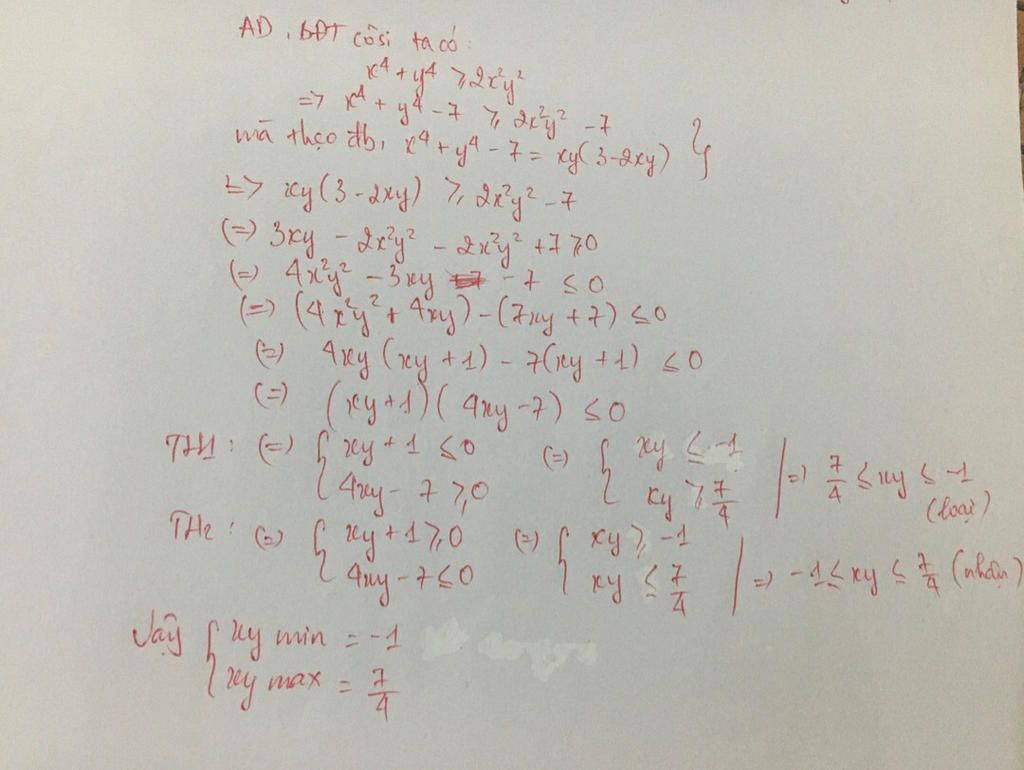 AD, BĐT côsi ta có:
x⁴ + y⁴ ≥ 2x²y²
=> x⁴ + y⁴ - 7 ≥ 2x²y² - 7
mà theo đb, x⁴ + y⁴ - 7 = xy(3 - 2xy) }
=> xy(3 - 2xy) ≥ 2x²y² - 7
(=) 3xy - 2x²y² - 2x²y² + 7 ≥ 0
(=) 4x²y² - 3xy - 7 ≤ 0
(=) (4x²y² + 4xy) - (7xy + 7) ≤ 0
(=) 4xy(xy + 1) - 7(xy + 1) ≤ 0
(=) (xy + 1)(4xy - 7) ≤ 0
TH1: (=) { xy + 1 ≤ 0 (=) { xy ≤ -1 | => 7/4 ≤ xy ≤ -1
4xy - 7 ≥ 0 xy ≥ 7/4 (loại)
TH2: (=) { xy + 1 ≥ 0 (=) { xy ≥ -1
4xy - 7 ≤ 0 xy ≤ 7/4 | => -1 ≤ xy ≤ 7/4 (nhận)
Vậy { xy min = -1
xy max = 7/4